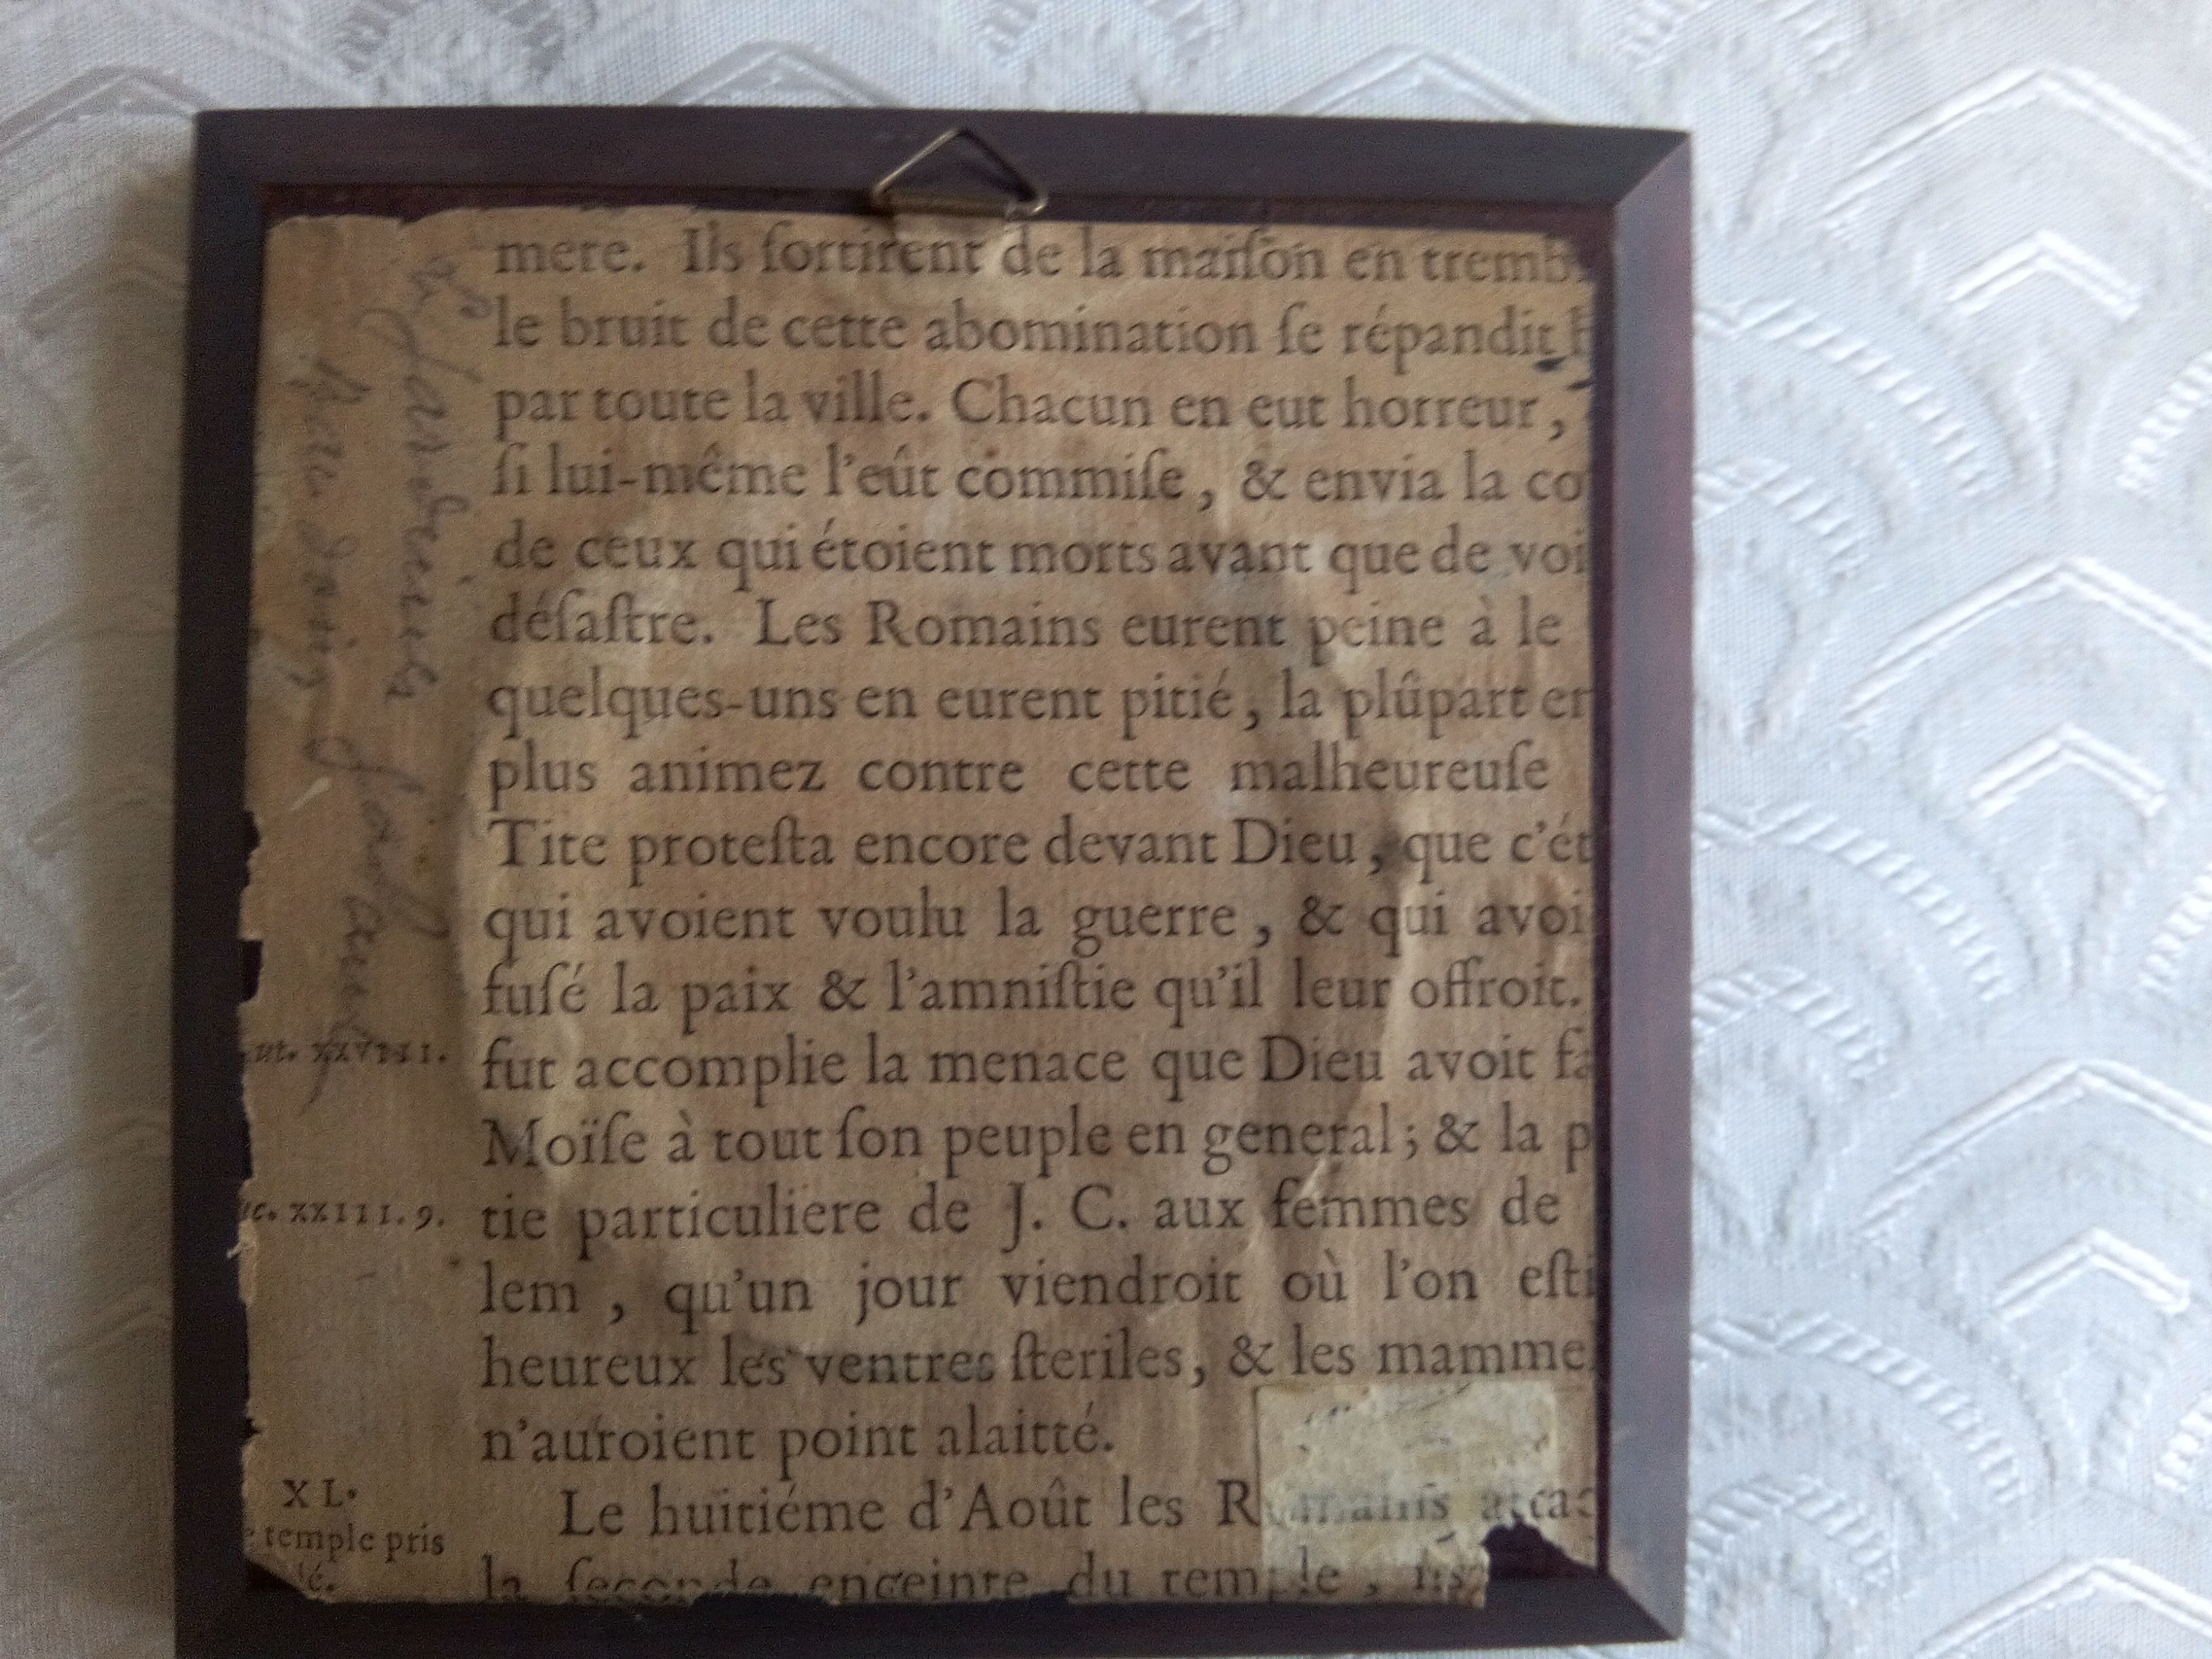 mere. Ils ſortirent de la maiſon en tremb
le bruit de cette abomination ſe répandit
par toute la ville. Chacun en eut horreur,
ſi lui-même l'eût commiſe, & envia la co
de ceux qui étoient morts avant que de voi
déſaſtre. Les Romains eurent peine à le
quelques-uns en eurent pitié, la plûpart en
plus animez contre cette malheureuſe
Tite proteſta encore devant Dieu, que c'ét
qui avoient voulu la guerre, & qui avoi
fuſé la paix & l'amniſtie qu'il leur offroit.
ut. XXVIII.
fut accomplie la menace que Dieu avoit fa
Moïſe à tout ſon peuple en general; & la p
uc. XXIII. 9.
tie particuliere de J. C. aux femmes de
lem, qu'un jour viendroit où l'on eſti
heureux les ventres ſteriles, & les mamme
n'auroient point alaitté.
XL.
e temple pris
lé.
Le huitiéme d'Août les Romains attac
la ſeconde enceinte du temple, ils